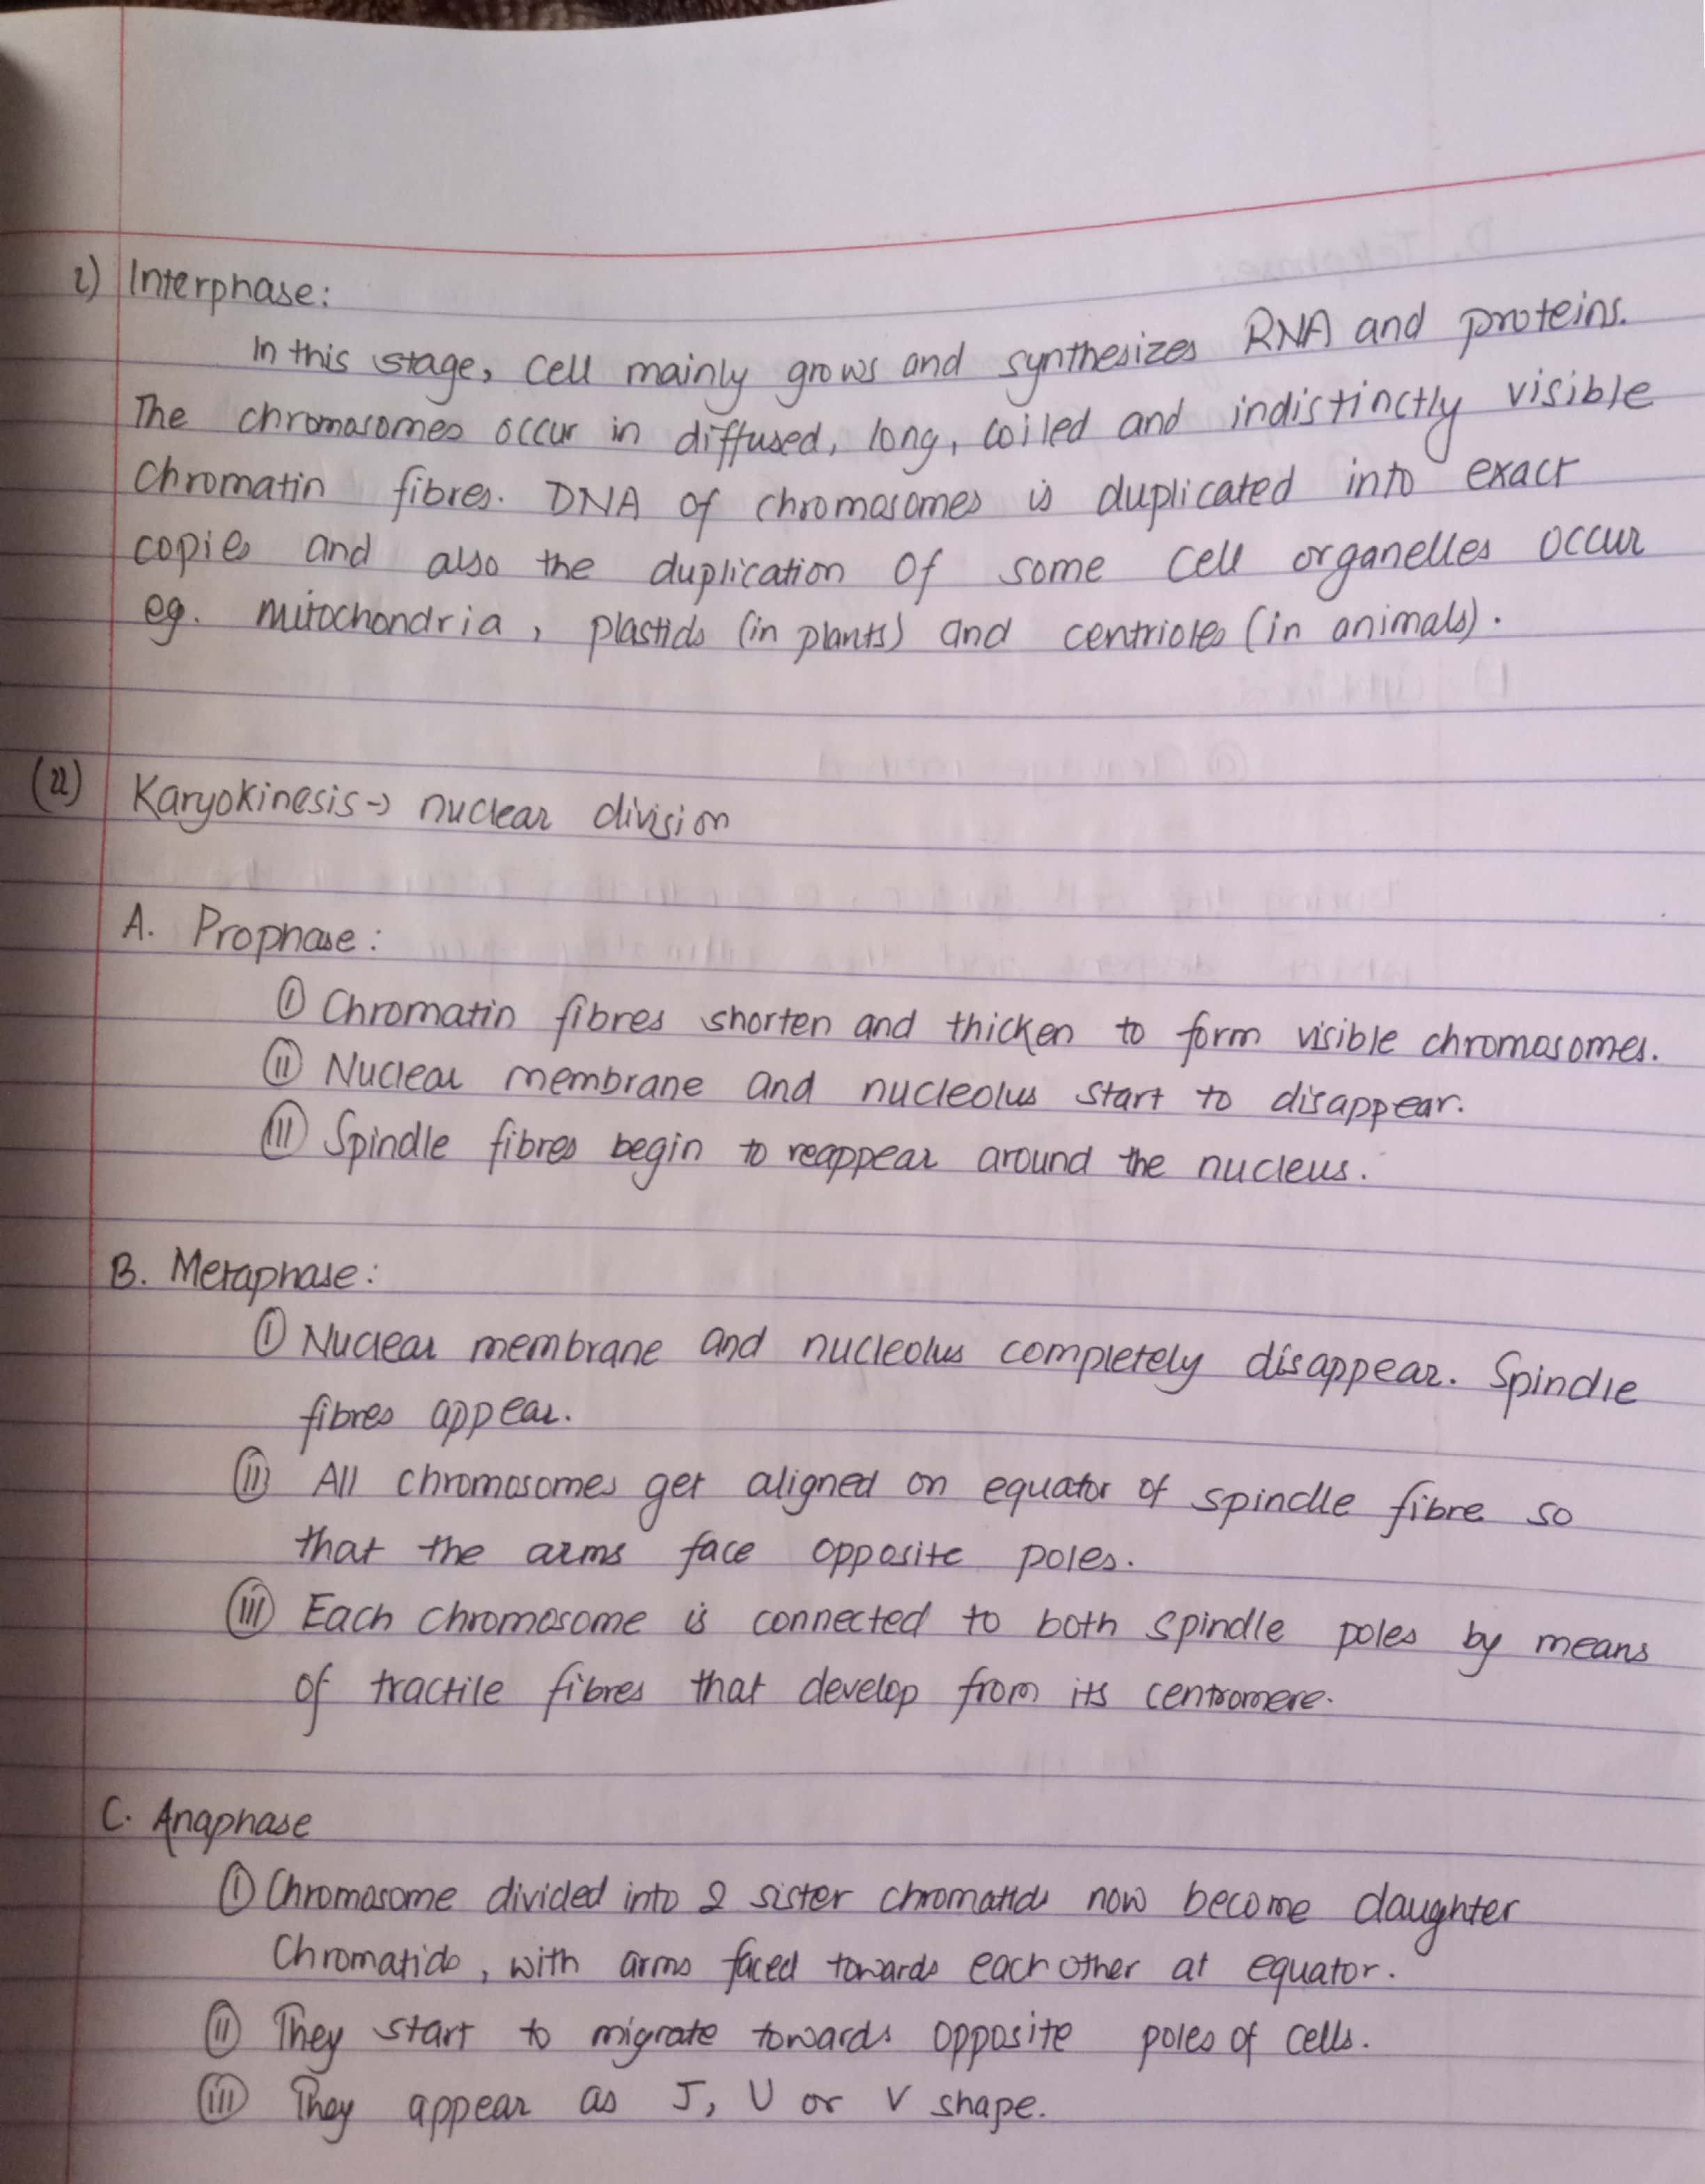 i) Interphase:
In this stage, cell mainly grows and synthesizes RNA and proteins.
The chromosomes occur in diffused, long, coiled and indistinctly visible
chromatin fibres. DNA of chromosomes is duplicated into exact
copies and also the duplication of some cell organelles occur
eg. mitochondria, plastids (in plants) and centrioles (in animals).
(ii) Karyokinesis → nuclear division
A. Prophase:
(i) Chromatin fibres shorten and thicken to form visible chromosomes.
(ii) Nuclear membrane and nucleolus start to disappear.
(iii) Spindle fibres begin to reappear around the nucleus.
B. Metaphase:
(i) Nuclear membrane and nucleolus completely disappear. Spindle
fibres appear.
(ii) All chromosomes get aligned on equator of spindle fibre so
that the arms face opposite poles.
(iii) Each chromosome is connected to both spindle poles by means
of tractile fibres that develop from its centromere.
C. Anaphase
(i) Chromosome divided into 2 sister chromatids now become daughter
Chromatids, with arms faced towards each other at equator.
(ii) They start to migrate towards opposite poles of cells.
(iii) They appear as J, U or V shape.